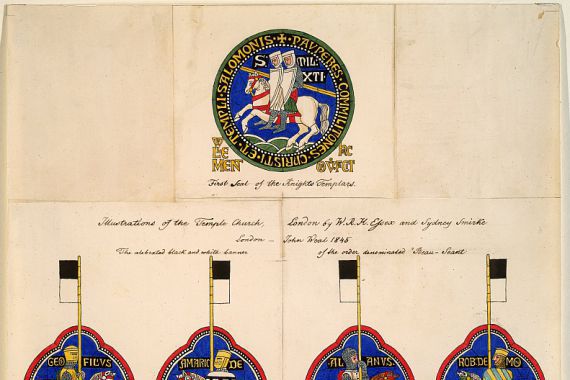 ✠ PAVPERES COMMILITONES CHRISTI ET TEMPLI SALOMONIS
S MIL
XTI
First Seal of the Knights Templars.
Illustrations of the Temple Church, London by W. R. H. Essex and Sydney Smirke
London — John Weal 1845
The celebrated black and white banner of the order denominated "Beau-Seant
GEO FILVS
AMARIC DE
ALANVS
ROB. DE MO